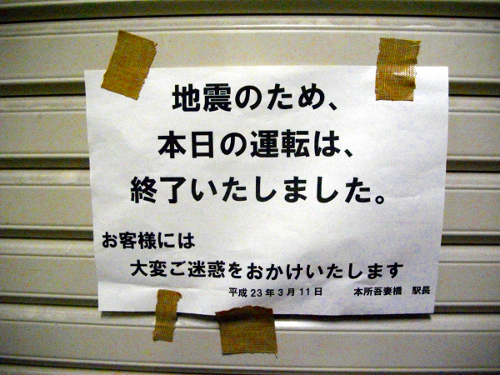 地震のため、
本日の運転は、
終了いたしました。
お客様には
大変ご迷惑をおかけいたします
平成23年3月11日 本所吾妻橋 駅長